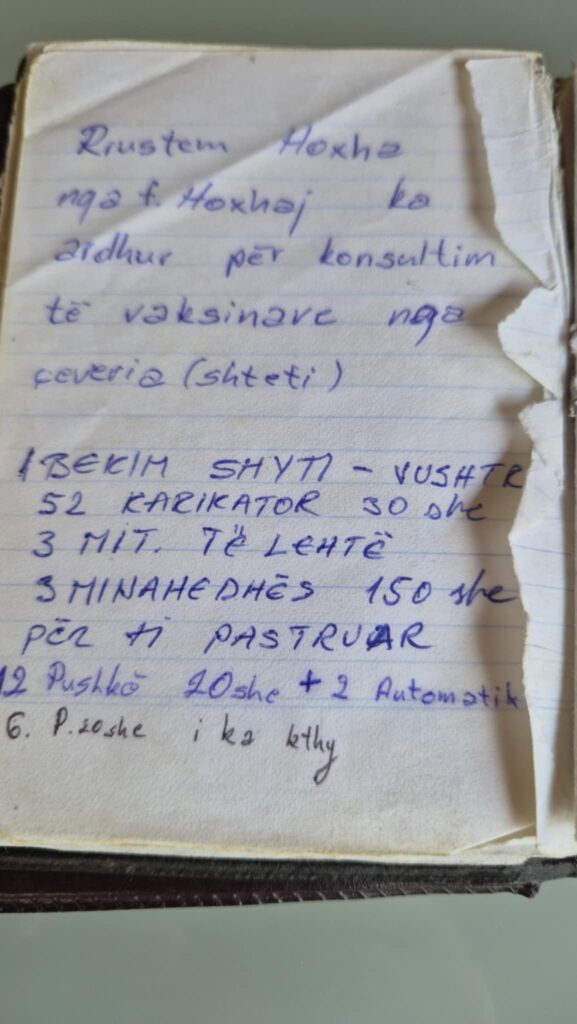 Rrustem Hoxha
nga f. Hoxhaj ka
ardhur për konsultim
të vaksinave nga
çeveria (shteti)
1 BEKIM SHYTI - VUSHTR
52 KARIKATOR 30 she
3 MIT. TË LEHTË
3 MINAHEDHËS 150 she
PËR TI PASTRUAR
12 Pushkë 20she + 2 Automatik
6. P. 20she i ka kthy